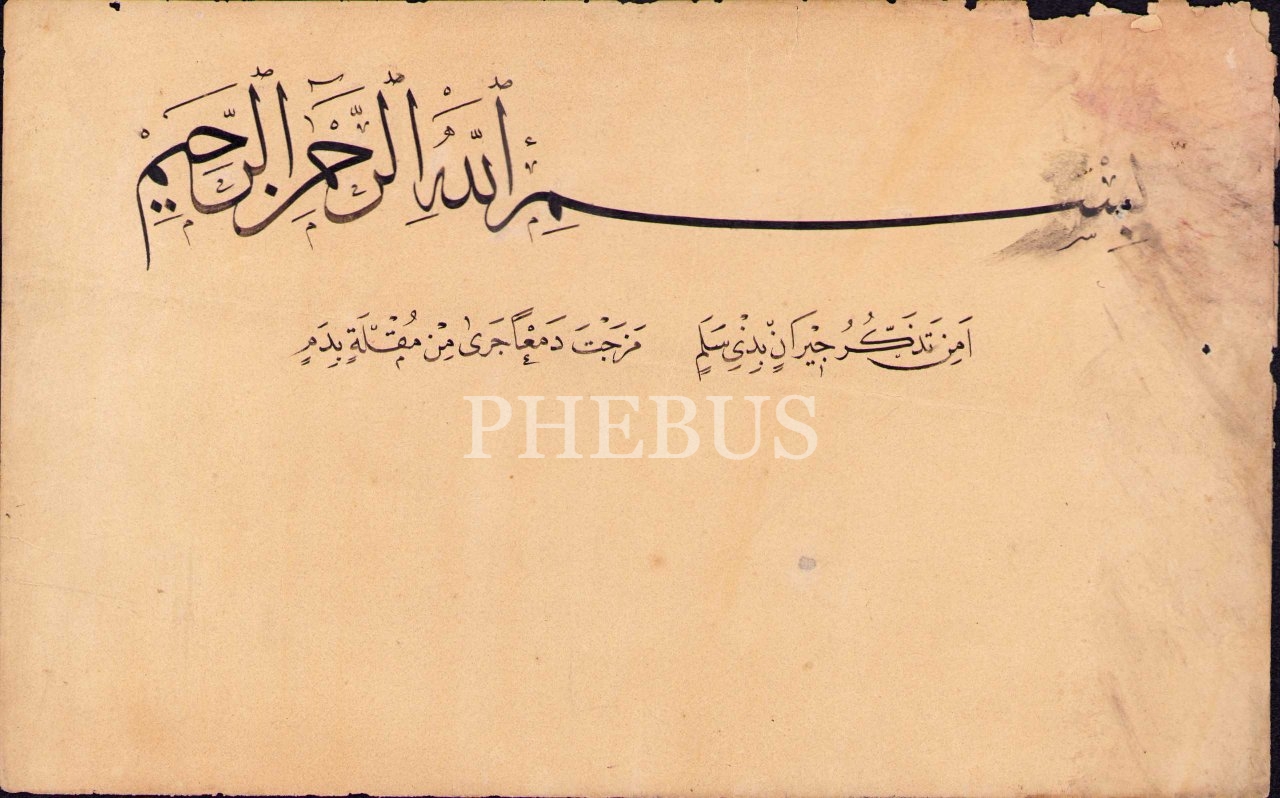 بِسْمِ ٱللّٰهِ ٱلرَّحْمٰنِ ٱلرَّحِيمِ
اَمِنْ تَذَكُّرِ جِيْرَانٍ بِذِيْ سَلَمٍ مَزَجْتَ دَمْعًا جَرٰى مِنْ مُقْلَةٍ بِدَمٍ
PHEBUS